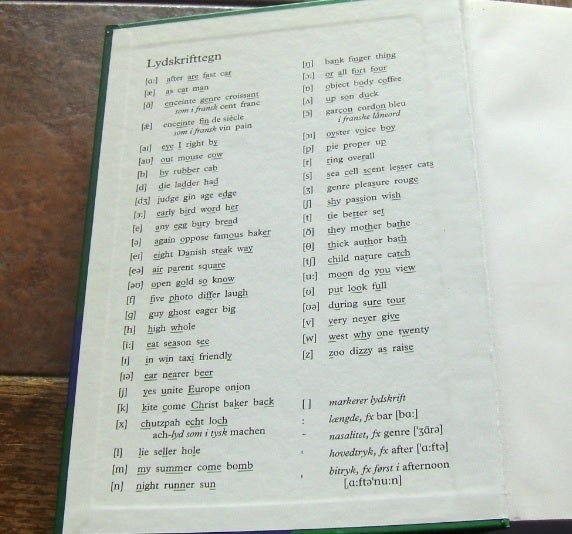 Lydskrifttegn
[ɑ:] after are fast car
[æ] as cat man
[ɑ̃] enceinte genre croissant
som i fransk cent franc
[æ̃] enceinte fin de siècle
som i fransk vin pain
[aɪ] eye I right by
[aʊ] out mouse cow
[b] by rubber cab
[d] die ladder had
[dʒ] judge gin age edge
[ɜ:] early bird word her
[e] any egg bury bread
[ə] again oppose famous baker
[eɪ] eight Danish steak way
[eə] air parent square
[əʊ] open gold so know
[f] five photo differ laugh
[g] guy ghost eager big
[h] high whole
[i:] eat season see
[ɪ] in win taxi friendly
[ɪə] ear nearer beer
[j] yes unite Europe onion
[k] kite come Christ baker back
[x] chutzpah echt loch
ach-lyd som i tysk machen
[l] lie seller hole
[m] my summer come bomb
[n] night runner sun
[ŋ] bank finger thing
[ɔ:] or all fort four
[ɒ] object body coffee
[ʌ] up son duck
[ɔ] garçon cordon bleu
i franske låneord
[ɔɪ] oyster voice boy
[p] pie proper up
[r] ring overall
[s] sea cell scent lesser cats
[ʒ] genre pleasure rouge
[ʃ] shy passion wish
[t] tie better set
[ð] they mother bathe
[θ] thick author bath
[tʃ] child nature catch
[u:] moon do you view
[ʊ] put look full
[ʊə] during sure tour
[v] very never give
[w] west why one twenty
[z] zoo dizzy as raise
[ ] markerer lydskrift
: længde, fx bar [bɑ:]
~ nasalitet, fx genre ['ʒɑ̃rə]
' hovedtryk, fx after ['ɑ:ftə]
ˌ bitryk, fx først i afternoon
[ˌɑ:ftə'nu:n]